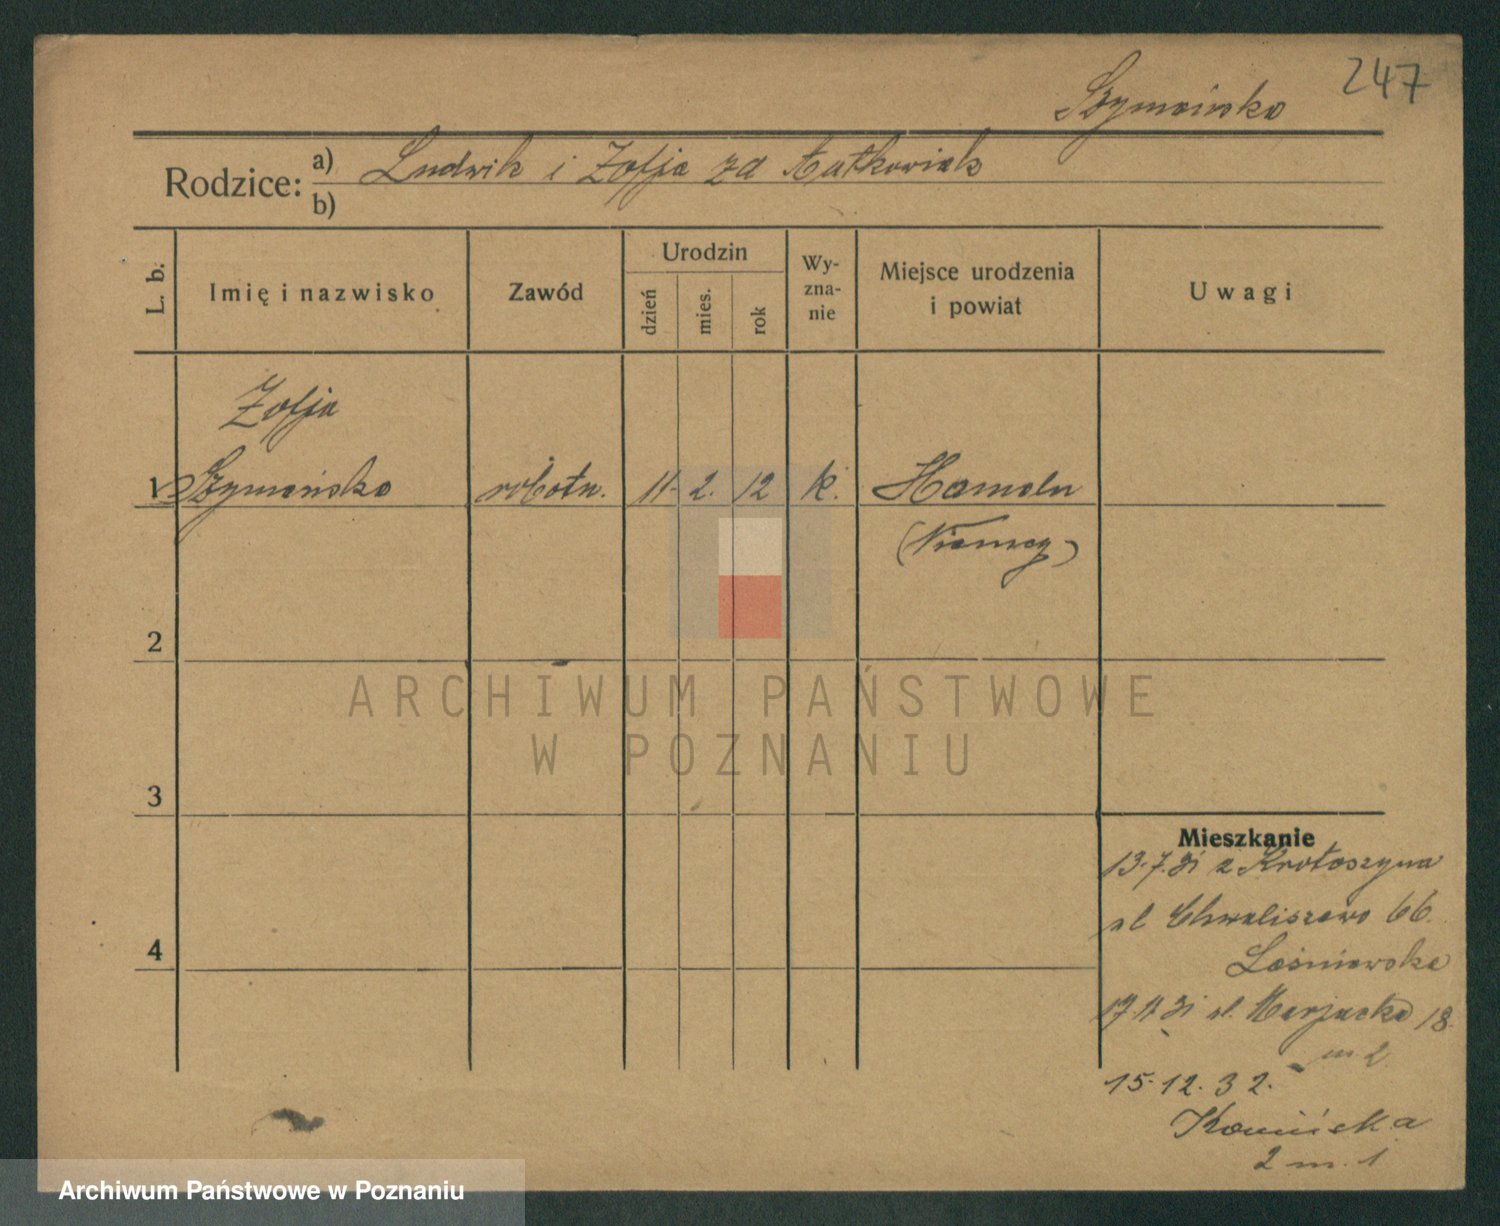 247
Szymańska
Rodzice: a) Ludwik i Zofja za Ratkowiak
b)
L. b.
Imię i nazwisko
Zawód
Urodzin
dzień
mies.
rok
Wy-
zna-
nie
Miejsce urodzenia
i powiat
Uwagi
Zofja
1 Szymańska robotn. 11. 2. 12 k. Hameln
(Niemcy)
2
3
4
Mieszkanie
13.7.31 z Krotoszyna
ul. Chwaliszewo 66.
Leśniewska
17.11.31 ul. Marjacka 18.
m. 2
15.12.32.
2 m. 1
ARCHIWUM PAŃSTWOWE
W POZNANIU
Archiwum Państwowe w Poznaniu